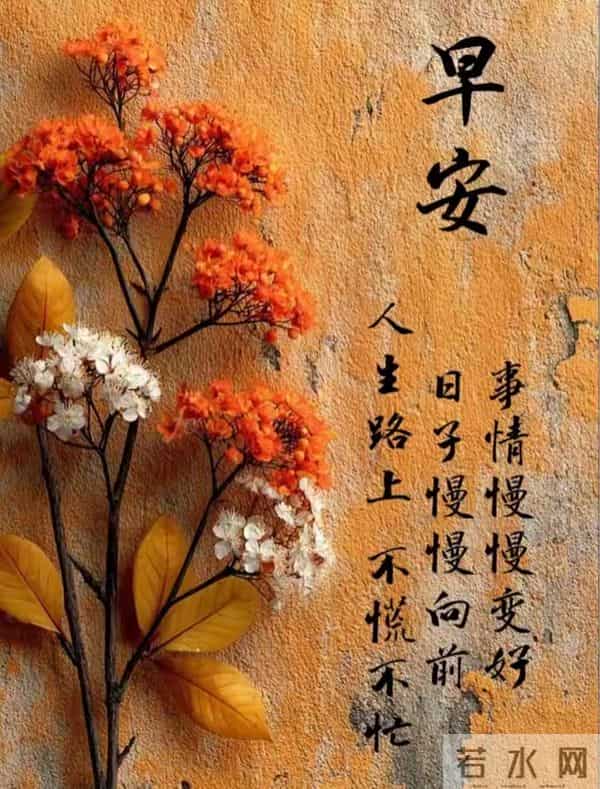 早安
人生路上 不慌不忙
日子慢慢向前
事情慢慢变好
若水网